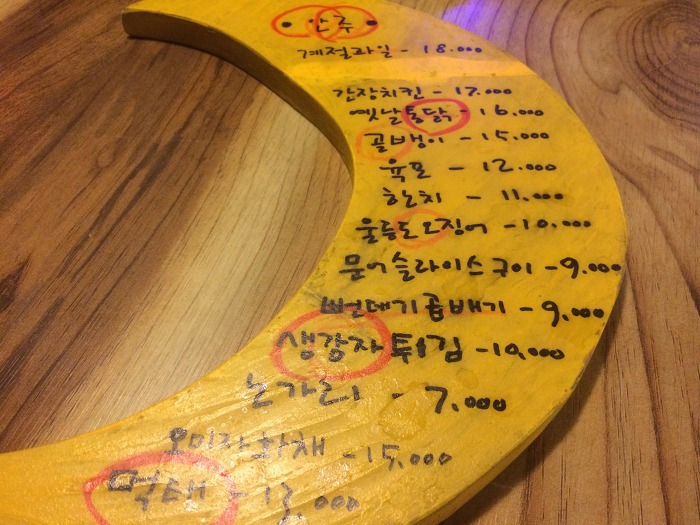 • 안주 •
계절과일 - 18.000
간장치킨 - 17.000
옛날통닭 - 16.000
골뱅이 - 15.000
육포 - 12.000
한치 - 11.000
울릉도오징어 - 10.000
문어슬라이스구이 - 9.000
뻔데기곱배기 - 9.000
생감자튀김 - 10.000
노가리 - 7.000
오미자화채 - 15.000
먹태 - 13.000